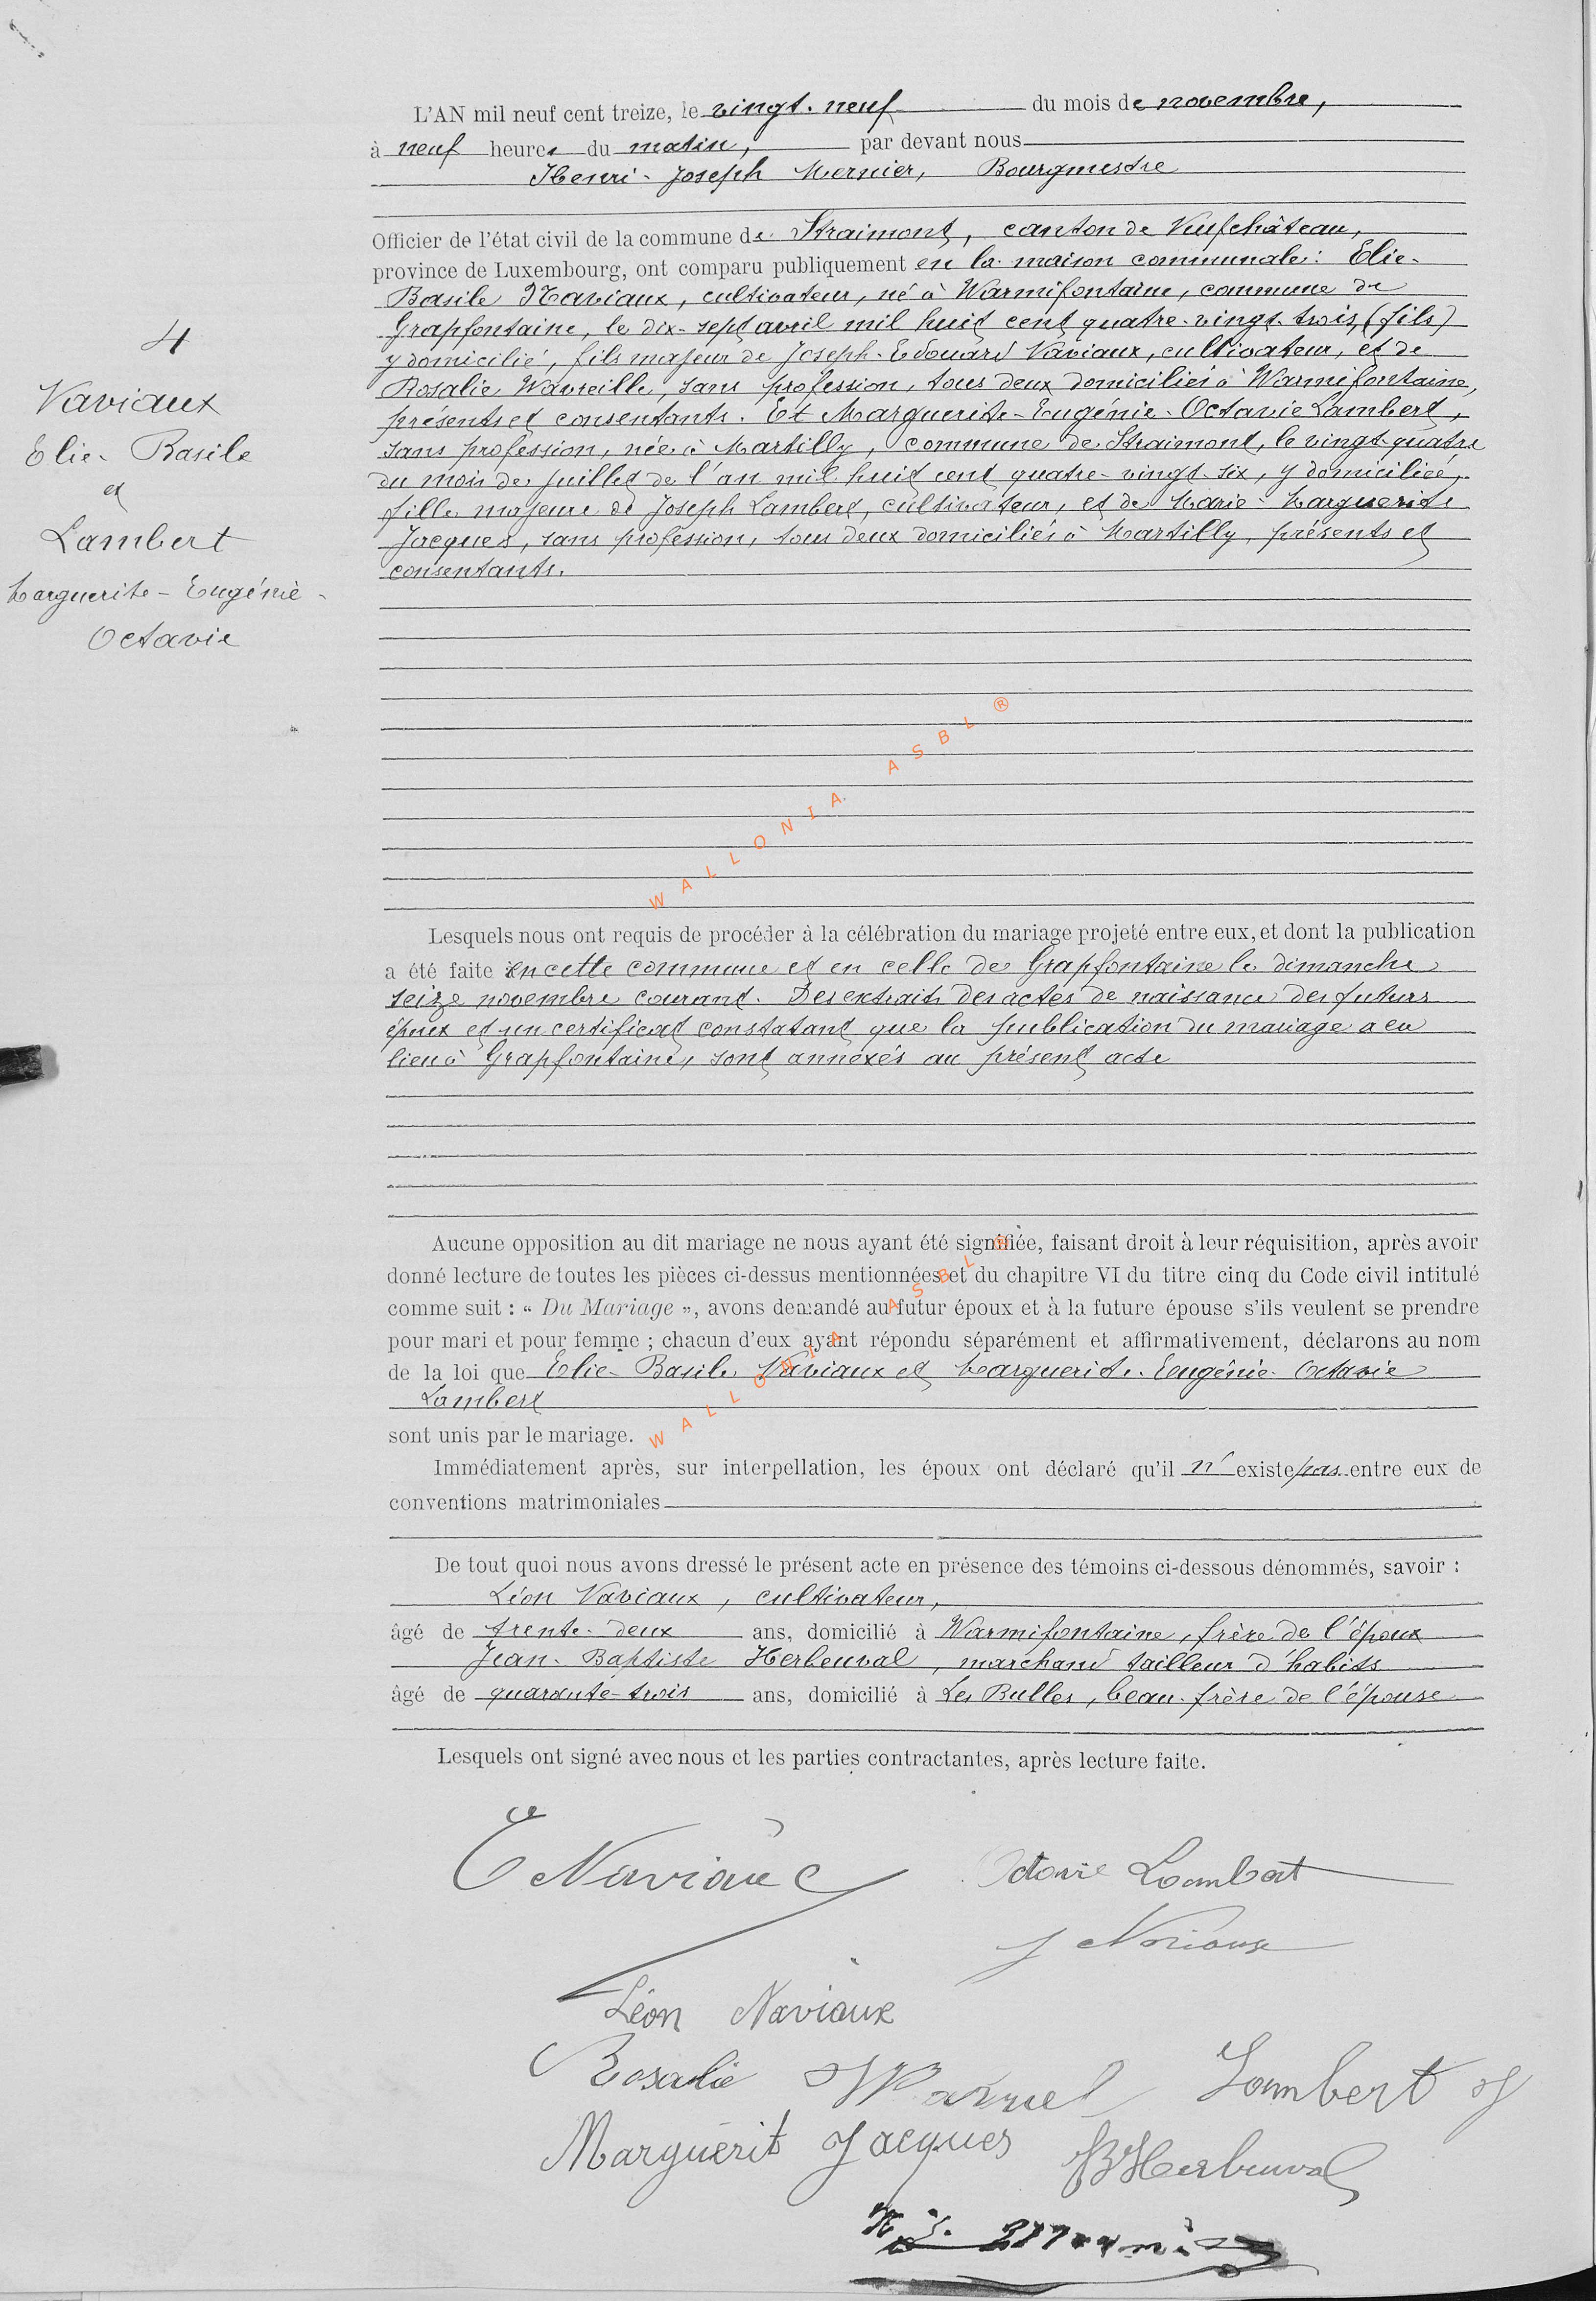 L'AN mil neuf cent treize, le vingt-neuf du mois de novembre,
à neuf heures du matin, par devant nous
Henri-Joseph Mernier, Bourgmestre
Officier de l'état civil de la commune de Straimont, canton de Neufchâteau,
province de Luxembourg, ont comparu publiquement en la maison communale: Elie-
Basile Naviaux, cultivateur, né à Warmifontaine, commune de
Grapfontaine, le dix-sept avril mil huit cent quatre-vingt-trois, (fils)
y domicilié, fils majeur de Joseph-Edouard Naviaux, cultivateur, et de
Rosalie Wavreille, sans profession, tous deux domiciliés à Warmifontaine,
présents et consentants. Et Marguerite-Eugénie-Octavie Lambert,
sans profession, née à Martilly, commune de Straimont, le vingt-quatre
du mois de juillet de l'an mil huit cent quatre-vingt-six, y domiciliée,
fille majeure de Joseph Lambert, cultivateur, et de Marie-Marguerite
Jacques, sans profession, tous deux domiciliés à Martilly, présents et
consentants.
4
Naviaux
Elie-Basile
et
Lambert
Marguerite-Eugénie-
Octavie
WALLONIA ASBL ®
Lesquels nous ont requis de procéder à la célébration du mariage projeté entre eux, et dont la publication
a été faite en cette commune et en celle de Grapfontaine le dimanche
seize novembre courant. Des extraits des actes de naissance des futurs
époux et un certificat constatant que la publication du mariage a eu
lieu à Grapfontaine, sont annexés au présent acte
Aucune opposition au dit mariage ne nous ayant été signifiée, faisant droit à leur réquisition, après avoir
donné lecture de toutes les pièces ci-dessus mentionnées et du chapitre VI du titre cinq du Code civil intitulé
comme suit : « Du Mariage », avons demandé au futur époux et à la future épouse s'ils veulent se prendre
pour mari et pour femme ; chacun d'eux ayant répondu séparément et affirmativement, déclarons au nom
de la loi que Elie-Basile Naviaux et Marguerite-Eugénie-Octavie
Lambert
sont unis par le mariage.
WALLONIA ASBL ®
Immédiatement après, sur interpellation, les époux ont déclaré qu'il n'existe pas entre eux de
conventions matrimoniales
De tout quoi nous avons dressé le présent acte en présence des témoins ci-dessous dénommés, savoir :
Léon Naviaux, cultivateur,
âgé de trente-deux ans, domicilié à Warmifontaine, frère de l'époux
Jean-Baptiste Herbeuval, marchand tailleur d'habits
âgé de quarante-trois ans, domicilié à Les Bulles, beau-frère de l'épouse
Lesquels ont signé avec nous et les parties contractantes, après lecture faite.
E Naviaux
Octavie Lambert
J Naviaux
Léon Naviaux
Rosalie Lambert J
Marguerit Jacques JB Herbeuval